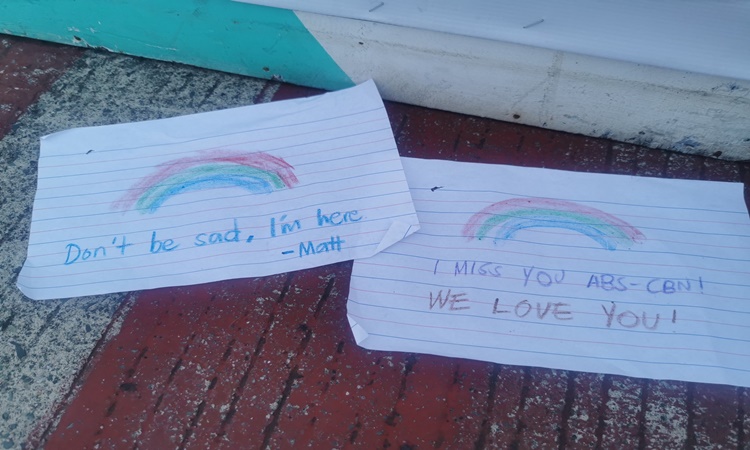 Don't be sad, I'm here
-Matt
I MISS YOU ABS-CBN!
WE LOVE YOU!